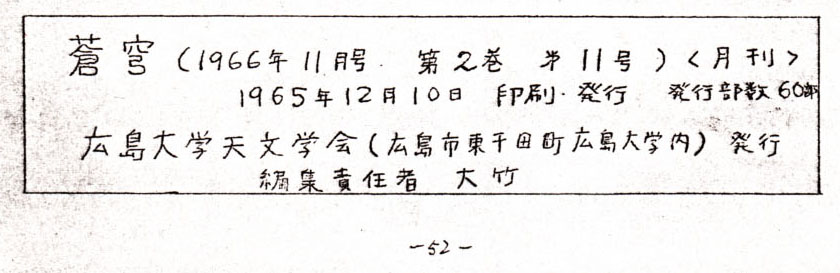 蒼穹(1966年11月号 第2巻 第11号)<月刊>
1965年12月10日 印刷・発行 発行部数60部
広島大学天文学会(広島市東千田町広島大学内)発行
編集責任者 大竹
-52-